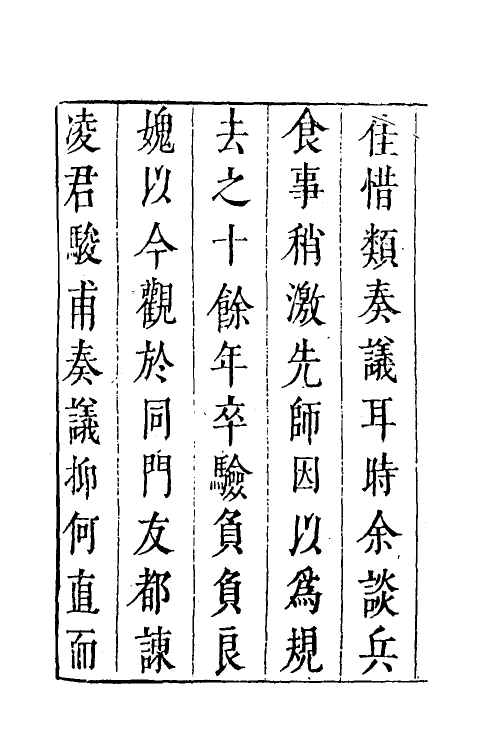 佳惜類奏議耳時余談兵
食事稍激先師因以為規
去之十餘年卒驗負負良
媿以今觀於同門友都諫
凌君駿甫奏議抑何直而